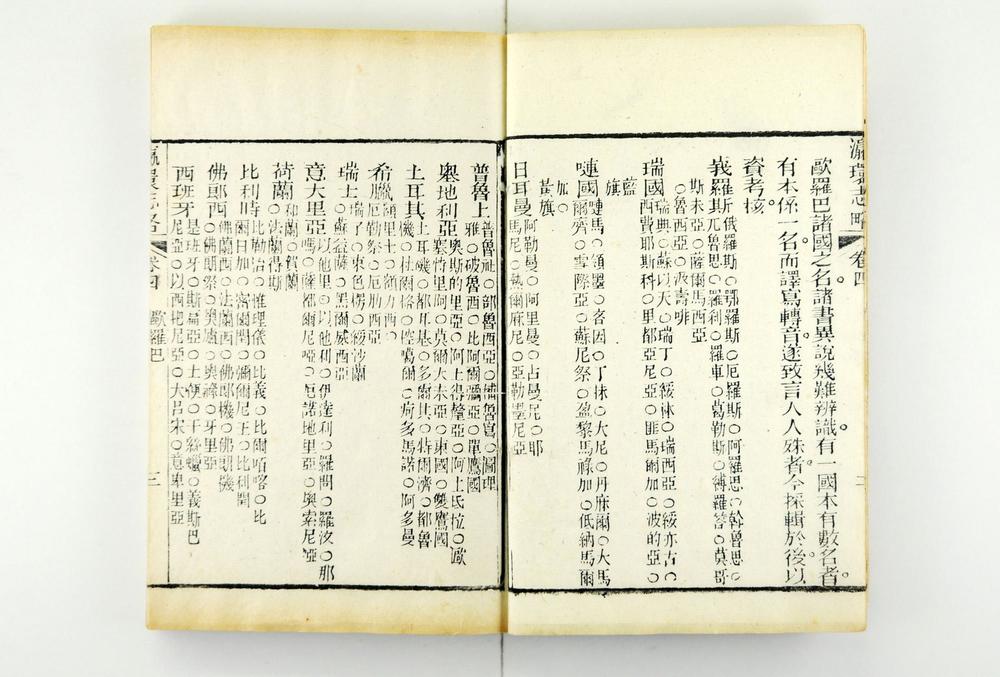 瀛環志略　卷四　二
歐羅巴諸國之名諸書異說幾難辨識有一國本有數名者
有本係一名而譯寫轉音遂致言人人殊者今採輯於後以
資考核
羅斯○俄羅斯○鄂羅斯○厄羅斯○阿羅思○斡魯思○
兀魯思○羅利○羅車○葛勒斯○縛羅答○莫哥
斯未亞○薩爾馬西亞
○魯西亞○波壽啡
瑞國瑞典○蘇以天○瑞丁○綏林○瑞西亞○綏亦古○
西費耶斯科○里都亞尼亞○匪馬爾加○波的亞○
藍
旗
嗹國嗹馬○領墨○吝因○丁抹○大尼○丹麻爾○大馬
爾齊○雪際亞○蘇尼祭○盈黎馬祿加○低納馬爾
加○
黃旗
日耳曼阿勒曼○阿里曼○占曼尼○耶
馬尼○熱爾麻尼○亞勒墨尼亞
普魯士普魯社○部魯西亞○
雅○破魯西○比阿爾彌亞○單鷹國
奧地利亞奧斯的里亞○阿士得釐亞○阿士氏拉○歐
塞特里阿○莫爾大未亞○東國○雙鷹國
土耳其土耳磯○都耳基○多爾其○特爾濟○都魯
機○杜爾格○控噶爾○疴多馬諾○阿多曼
希臘額里士○額力西○
厄勒祭○厄肋西亞
瑞士蘇益薩○黑爾威西亞
瑞子○束色楞○綏沙蘭
意大里亞以他里○以他利○伊達利○羅問○羅汶○那
嗎○薩都爾尼啞○厄諾地里亞○奧索尼啞
荷蘭和蘭○賀蘭
○法蘭得斯
比利時比勒治○惟理儀○比義○比爾咯喀○比
爾日加○密爾閏○彌爾尼王○比利閏
佛郎西佛蘭西○法蘭西○佛郎機○佛朗機
○佛朗祭
西班牙是班牙○斯扁亞○士便○干絲蠟○義斯巴
尼亞○以西把尼亞○大呂宋○意卑里亞
瀛環志略　卷四　歐羅巴　三